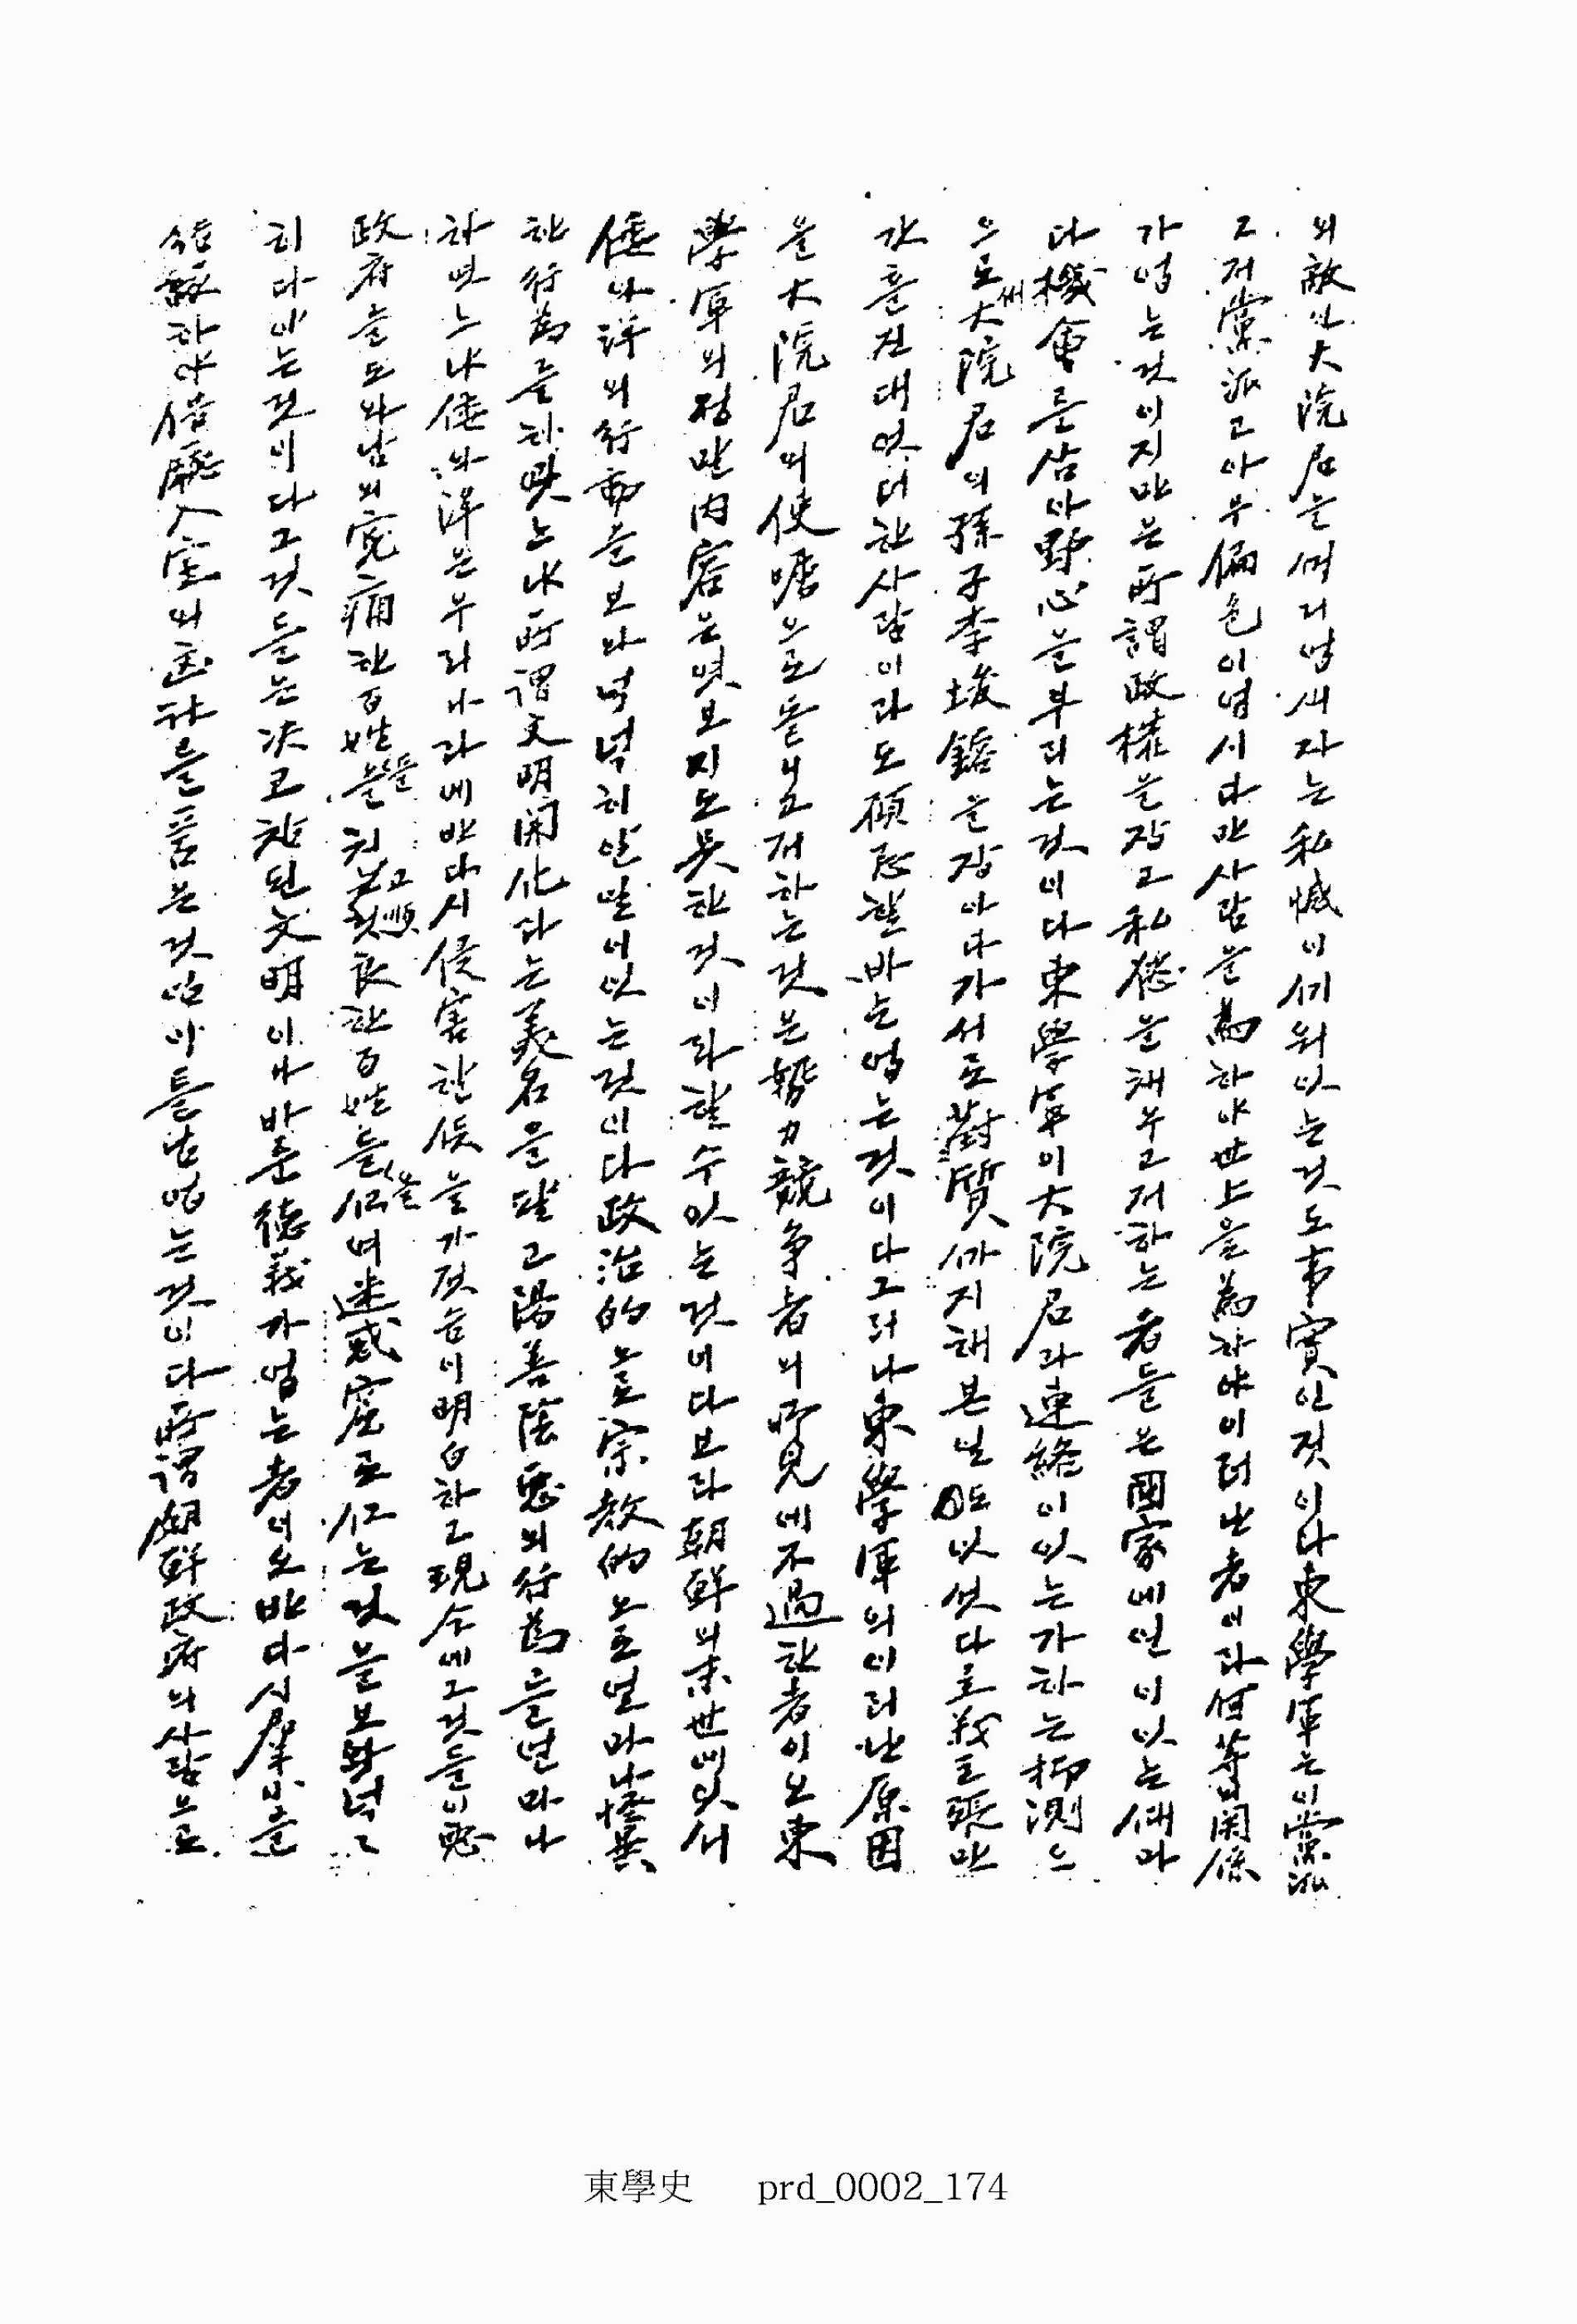 의 敵인 大院君을 꺼리엿새자는 私憾이 끼워잇는 것도 事實인 것이다 東學軍은 이 黨派
그저 黨派고 아무 偏色이 업시 다만 사람을 爲하야 世上을 爲하야 이러난 者이라 何等의 關係
가 업는 것이지만은 所謂 政權을 잡고 私慾을 채우고저 하는 者들은 國家에 일이 잇는대마
다 機會를 삼아 野心을 부리는 것이다 東學軍이 大院君과 連絡이 잇는가 하는 抑測으
로써 大院君의 孫子 李埈鎔을 잡아다가 서로 對質까지 해 본 일도 잇섯다 로 하 主張만
갓흘진대 엇더한 사람이라도 顧忌할 바는 업는 것이다 그러나 東學軍의 이러난 原因
을 大院君의 使嗾으로 돌니고저 하는 것은 勢力競爭者의 所見에 不過한 者이오 東
學軍의 정말 內容은 엿보지도 못한 것이라 할 수 잇는 것이다 보라 朝鮮의 末世에 잇서
倭나 洋의 行動을 보아 넉넉히 알 만이 잇는 것이다 政治的으로 宗敎的으로 얼마나 慘毒
한 行爲를 하엿느냐 所謂 文明開化라는 美名을 팔고 陽善陰惡의 行爲를 얼마나
하엿느냐 倭와 洋은 우리나라에 반다시 侵害할 仄을 가젓슴이 明白하고 現今에 그것들이 惡
政府를 도와 남의 寃痛한 百姓들을 치고 順良한 百姓들을 꾀여 迷惑窟로 끄는 것을 보와 넉넉
히 다 아는 것이다 그것들은 決코 참된 文明이나 바른 德義가 업는 者이오 반다시 群小를
結託하야 借廳入室의 凶計를 품은 것임이 틀님업는 것이다 所謂 朝鮮政府의 사람으로
東學史 prd_0002_174